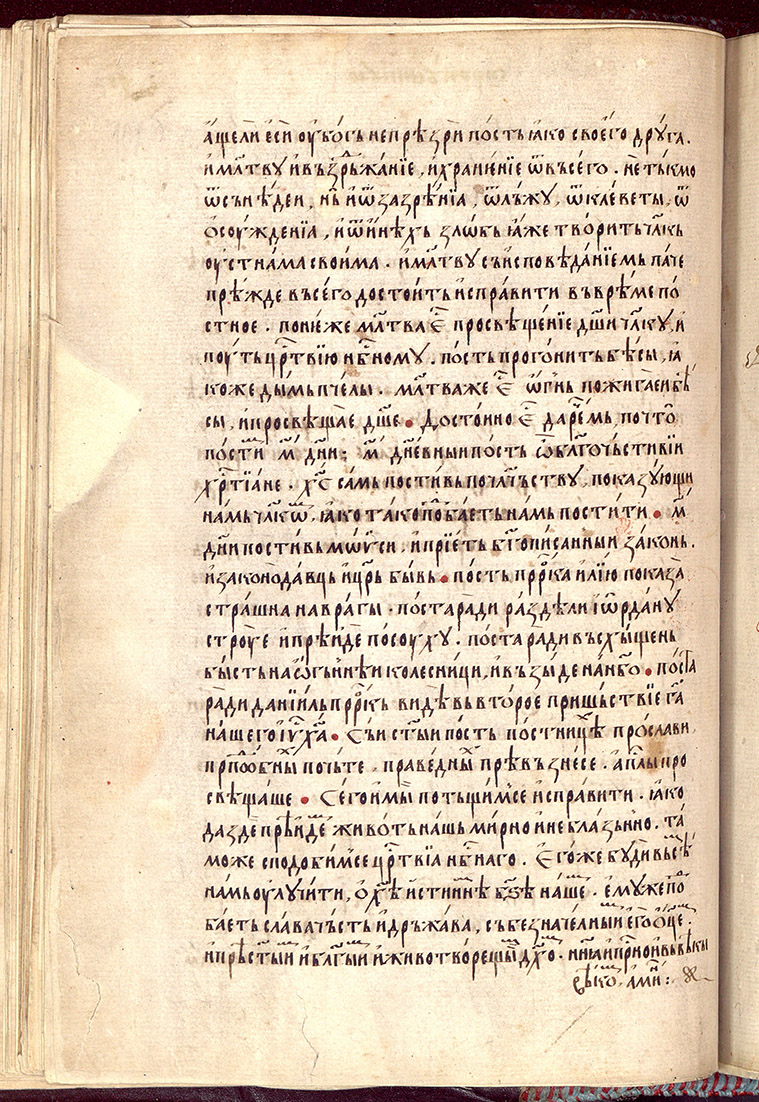 а҆щели е҆си оу҆бѡгъ непрѣзри постъ ꙗ҆ко своего дрꙋга.
и҆ мл҃твꙋ и҆ въздръжанїе, и҆ хранѥнїе ѿ въсего. не тькмо
ѿ сънѣдеи, нь и҆ ѿ зазрѣнїа, ѿ лъжꙋ, ѿ клеветы, ѿ
ѻ҆соуждѣнїа, и҆ ѿ и҆нѣхь злѡбь ꙗ҆же творить чл҃кь
оу҆стнама своима. и҆ мл҃твꙋ съ и҆сповѣданїемь паче
прѣжде въсего достоить и҆справити въ врѣме по
стное. понѥже мл҃тва є҆҃ просвѣщенїе дш҃и чл҃кꙋ, и҆
поуть цр҃твїю нб҃номꙋ. постъ прогонить бѣсы, ꙗ҆
коже дымь пчелы. мл҃тва же є҆҃ ѡ҆гнь пожигаеи бѣ
сы, и҆ просвѣщае дш҃е. Достоино є҆҃ да рцемь, почто
постим м҃ дн҃и; м҃ дн҃евныи постъ ѡ҆ благочьстивїи
хр҃тїане. хс҃ самь постивь по чл҃чьствꙋ, показꙋющи
намь чл҃кѡм, ꙗ҆ко тако побаеть намь постити. м҃
дн҃и постивь мѡѵ҆си, и҆ прїеть бг҃описанныи законь.
и҆ законодавць и҆ цр҃ь бывь. постъ прⷪ҇рка и҆лїю показа
страшна на врагы. поста ради раздѣли і҆ѡ҆рданꙋ
строуѥ и҆ прѣиде по соухꙋ. поста ради въсхыщень
бысть на ѡ҆гньнѣи колесници, и҆ възыде на нб҃о. поста
ради данїиль прⷪ҇ркь видѣвь второе пришьствїе га҃
нашего і҆ѵ҃ ха҃. Съи ст҃ыи постъ постницѣ прослави,
прпⷣобны почьте, праведны прѣвъзнесе. а҆пⷭ҇лы про
свѣщаше. Сего и҆ мы потьщимсе и҆справити. ꙗ҆ко
да зде прѣидем животь нашь мирно и҆ не блазньно. та
може сподобимсе цр҃твїа нб҃наго. Єгоже бꙋди въсѣм
намь оу҆лꙋчити, ѻ҆ хѣ҃ и҆стиннѣм бзѣ҃ нашем. е҆мꙋже по
баеть слава чьсть и҆ дръжава, съ безначелныи е҆го ѻ҆ц҃ем.
и҆ прѣст҃ыи и҆ благыи и҆ животворещыи дх҃о. нн҃ꙗ и҆ прⷭ҇но и҆ въ вѣкы
вѣко. а҆ми҃: